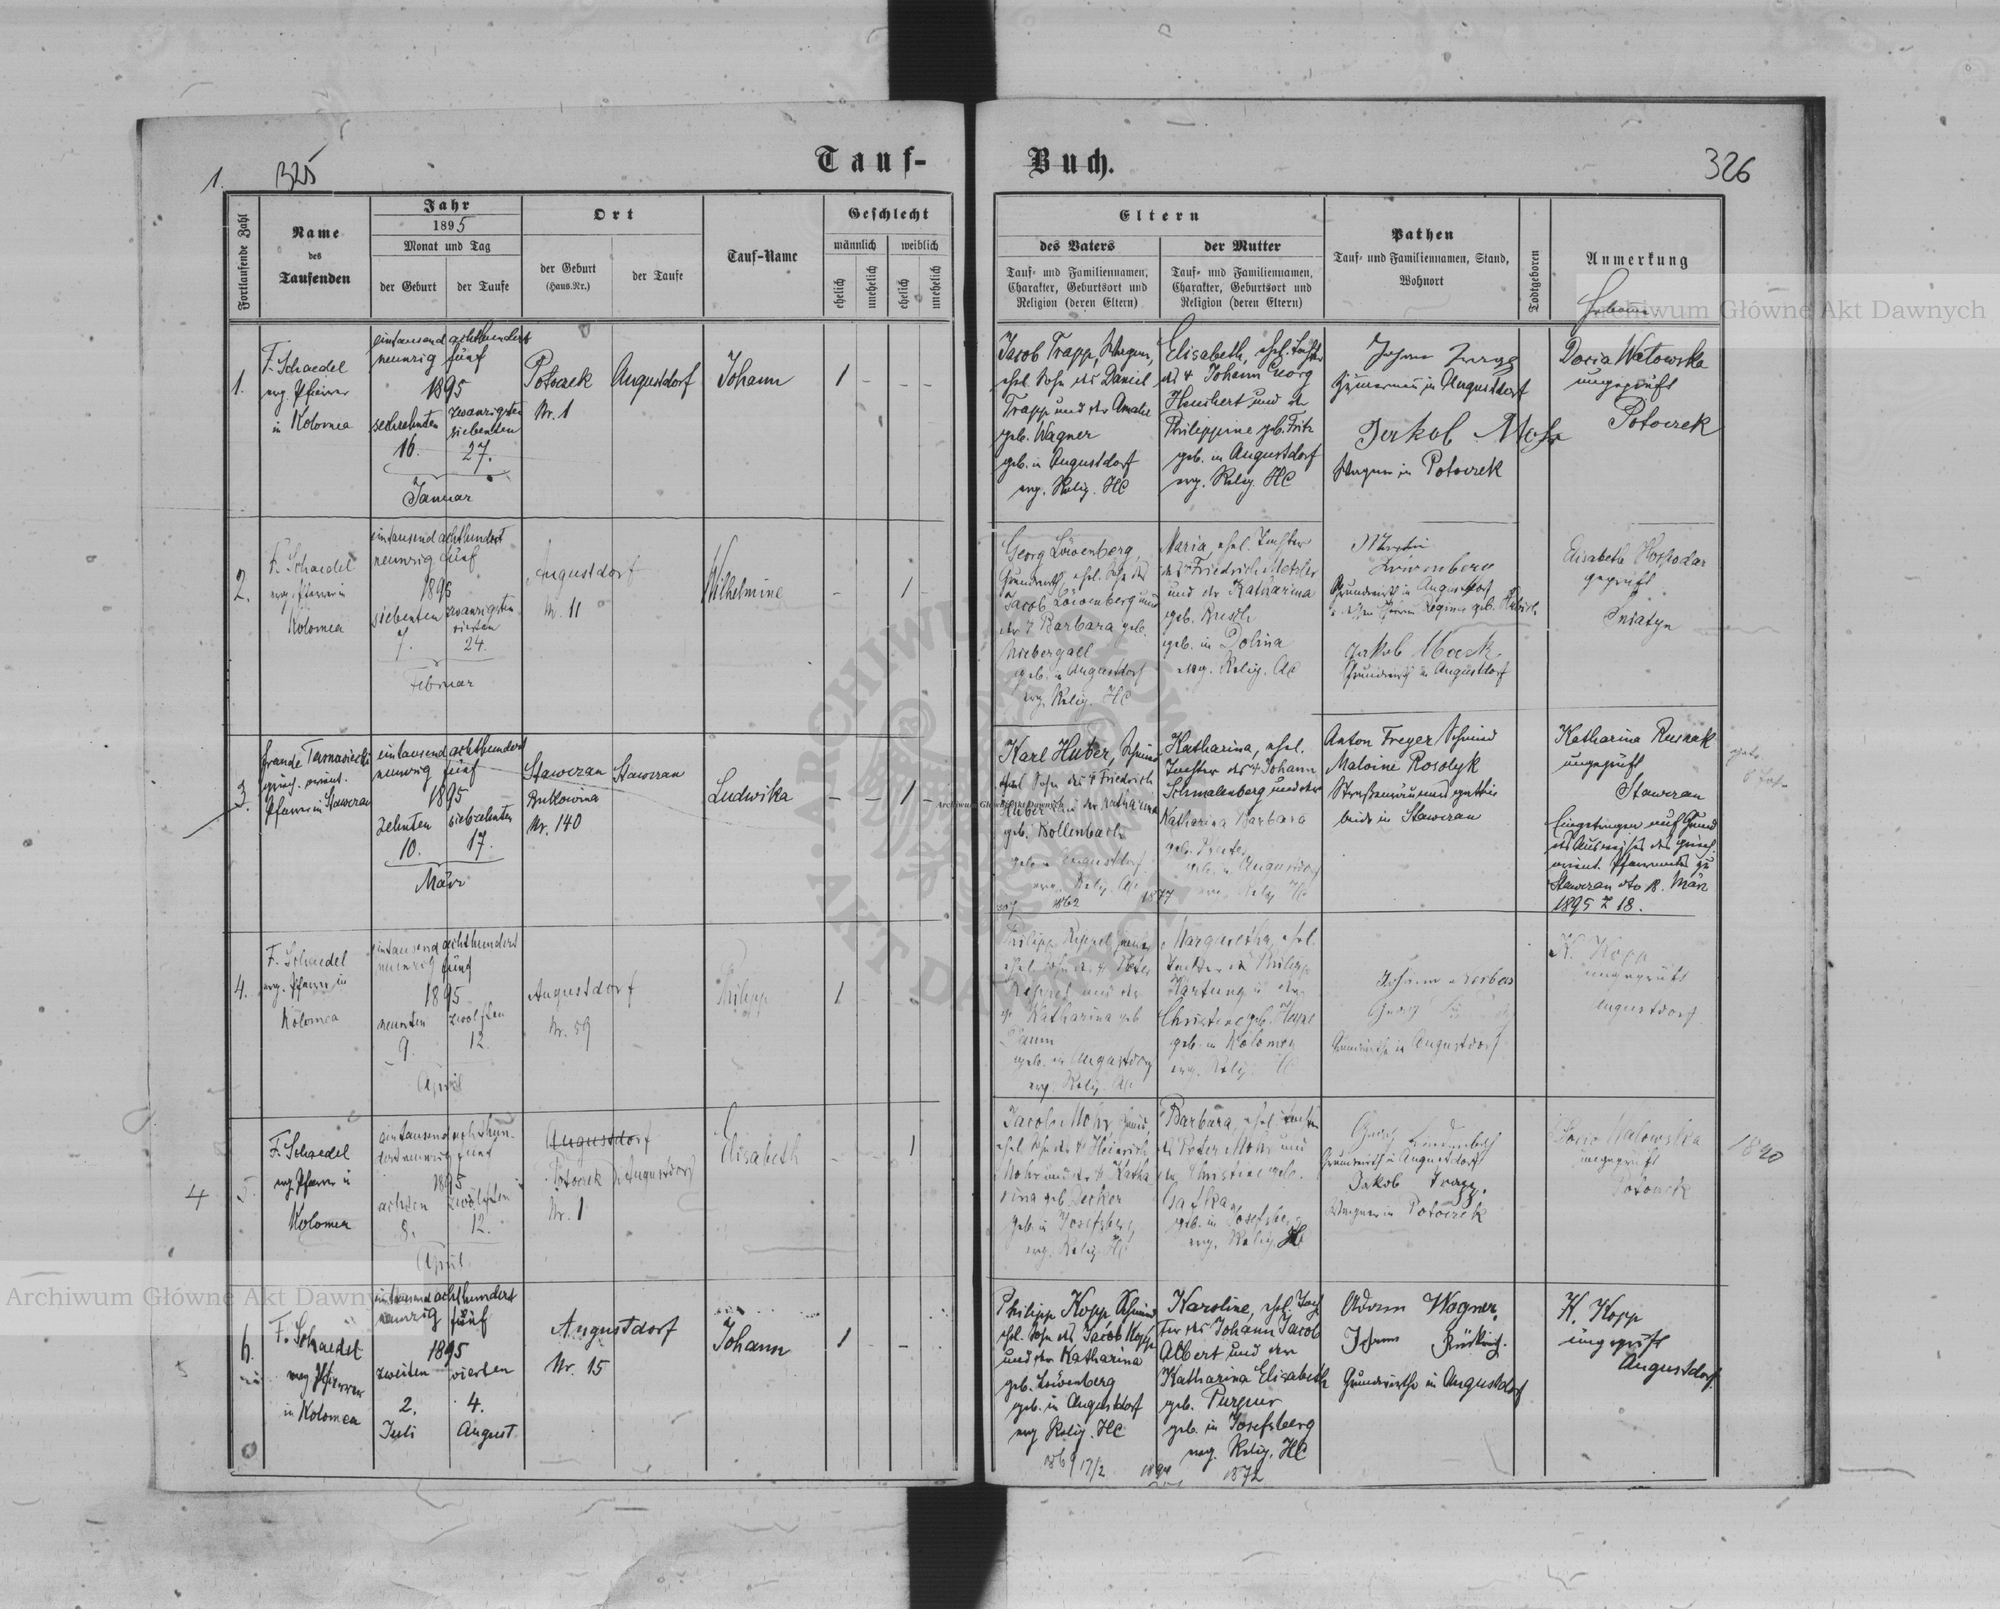 Tauf-
Buch.
1.
325
326
Fortlaufende Zahl
Name
des
Taufenden
Jahr
1895
Monat und Tag
der Geburt
der Taufe
Ort
der Geburt
(Haus.Nr.)
der Taufe
Tauf-Name
Geschlecht
männlich
weiblich
ehelich
unehelich
ehelich
unehelich
Eltern
des Vaters
Tauf- und Familiennamen,
Charakter, Geburtsort und
Religion (deren Eltern)
der Mutter
Tauf- und Familiennamen,
Charakter, Geburtsort und
Religion (deren Eltern)
Pathen
Tauf- und Familiennamen, Stand,
Wohnort
Todtgeboren
Anmerkung
1.
F. Schaedel
evg. Pfarrer
in Kolomea
eintausend achthundert
neunzig fünf
1895
sechzehnten
16.
zwanzigsten
siebenten
27.
Januar
Potoczek
Nr. 1
Augustdorf
Johann
1 - - -
Jacob Trapp, Wagner,
ehel. Sohn des Daniel
Trapp und der Amalie
geb. Wagner
geb. in Augustdorf
evg. Relig. HC
Elisabeth, ehel. Tochter
des † Johann Georg
und der
Philippine geb. Fritz
geb. in Augustdorf
evg. Relig. HC
in Augustdorf
Jakob Mohr
Wagner in Potoczek
ungeprüft
Potoczek
2.
F. Schaedel
evg. Pfarrer in
Kolomea
eintausend achthundert
neunzig fünf
1895
siebenten
7.
zwanzigsten
vierten
24.
Februar
Augustdorf
Nr. 11
Wilhelmine
- - 1 -
Georg Löwenberg,
Grundwirth, ehel. Sohn des
Jacob Löwenberg und
der † Barbara geb.
Niebergall
geb. in Augustdorf
evg. Relig. HC
Maria, ehel. Tochter
des Friedrich
und der Katharina
geb.
geb. in Dolina
evg. Relig. AC
Löwenberg
Grundwirth in Augustdorf
Regina geb.
Jakob
Grundwirth in Augustdorf
Elisabeth Hospodar
geprüft
Sniatyn
3.
Pfarrer in Stawczan
eintausend achthundert
neunzig fünf
1895
zehnten
10.
siebzehnten
17.
März
Stawczan
Bukowina
Nr. 140
Stawczan
Ludwika
- - 1 -
Karl Huber, Schmied
ehel. Sohn des † Friedrich
Huber und der Katharina
geb.
geb. in Augustdorf
evg. Relig. AC
1862
Katharina, ehel.
Tochter des † Johann
Schmalenberg und der
Katharina Barbara
geb.
geb. in Augustdorf
evg. Relig. HC
1877
Anton Freyer Schmied
Malvine Rosolyk
beide in Stawczan
Katharina Rusnak
ungeprüft
Stawczan
Eingetragen auf Grund
des Ausweises des griech.
orient. Pfarramtes zu
Stawczan dto 18. März
1895 Z 18.
4.
F. Schaedel
evg. Pfarrer in
Kolomea
eintausend achthundert
neunzig fünf
1895
neunten
9.
zwölften
12.
April
Augustdorf
Nr. 59
Philipp
1 - - -
Philipp
ehel. Sohn des † Peter
und der
† Katharina geb.
geb. in Augustdorf
evg. Relig. AC
Margaretha, ehel.
Tochter des Philipp
Hartung u der
Christine geb.
geb. in Kolomea
evg. Relig. HC
Georg
Grundwirthe in Augustdorf
K. Kopp
ungeprüft
Augustdorf
5.
4
F. Schaedel
evg. Pfarrer in
Kolomea
eintausend achthun-
dert neunzig fünf
1895
achten
8.
zwölften
12.
April
Augustdorf
Potoczek
Nr. 1
Augustdorf
Elisabeth
- - 1
Jacob Mohr
ehel. Sohn des † Heinrich
Mohr und der † Katha
rina geb. Decker
geb. in Josefsberg
evg. Relig. HC
Barbara, ehel. Tochter
des Peter Mohr und
der Christine geb.
geb. in Josefsberg
evg. Relig. HC
Georg
Grundwirth in Augustdorf
Jakob Trapp.
Wagner in Potoczek
ungeprüft
Potoczek
6.
F. Schaedel
evg Pfarrer
in Kolomea
eintausend achthundert
neunzig fünf
1895
zweiten
2.
Juli
vierten
4.
August
Augustdorf
Nr. 15
Johann
1 - -
Philipp Kopp Schmied
ehel. Sohn des Jacob Kopp
und der Katharina
geb. Löwenberg
geb. in Augustdorf
evg Relig. HC
1869 17/2
Karoline, ehel. Toch
ter des Johann Jacob
Albert und der
Katharina Elisabeth
geb. Purpur
geb. in Josefsberg
evg. Relig. HC
1894
1872
Adam Wagner,
Johann
Grundwirthe in Augustdorf
K. Kopp
ungeprüft
Augustdorf
Archiwum Główne Akt Dawnych
Archiwum Główne Akt Dawnych
Archiwum Główne Akt Dawnych